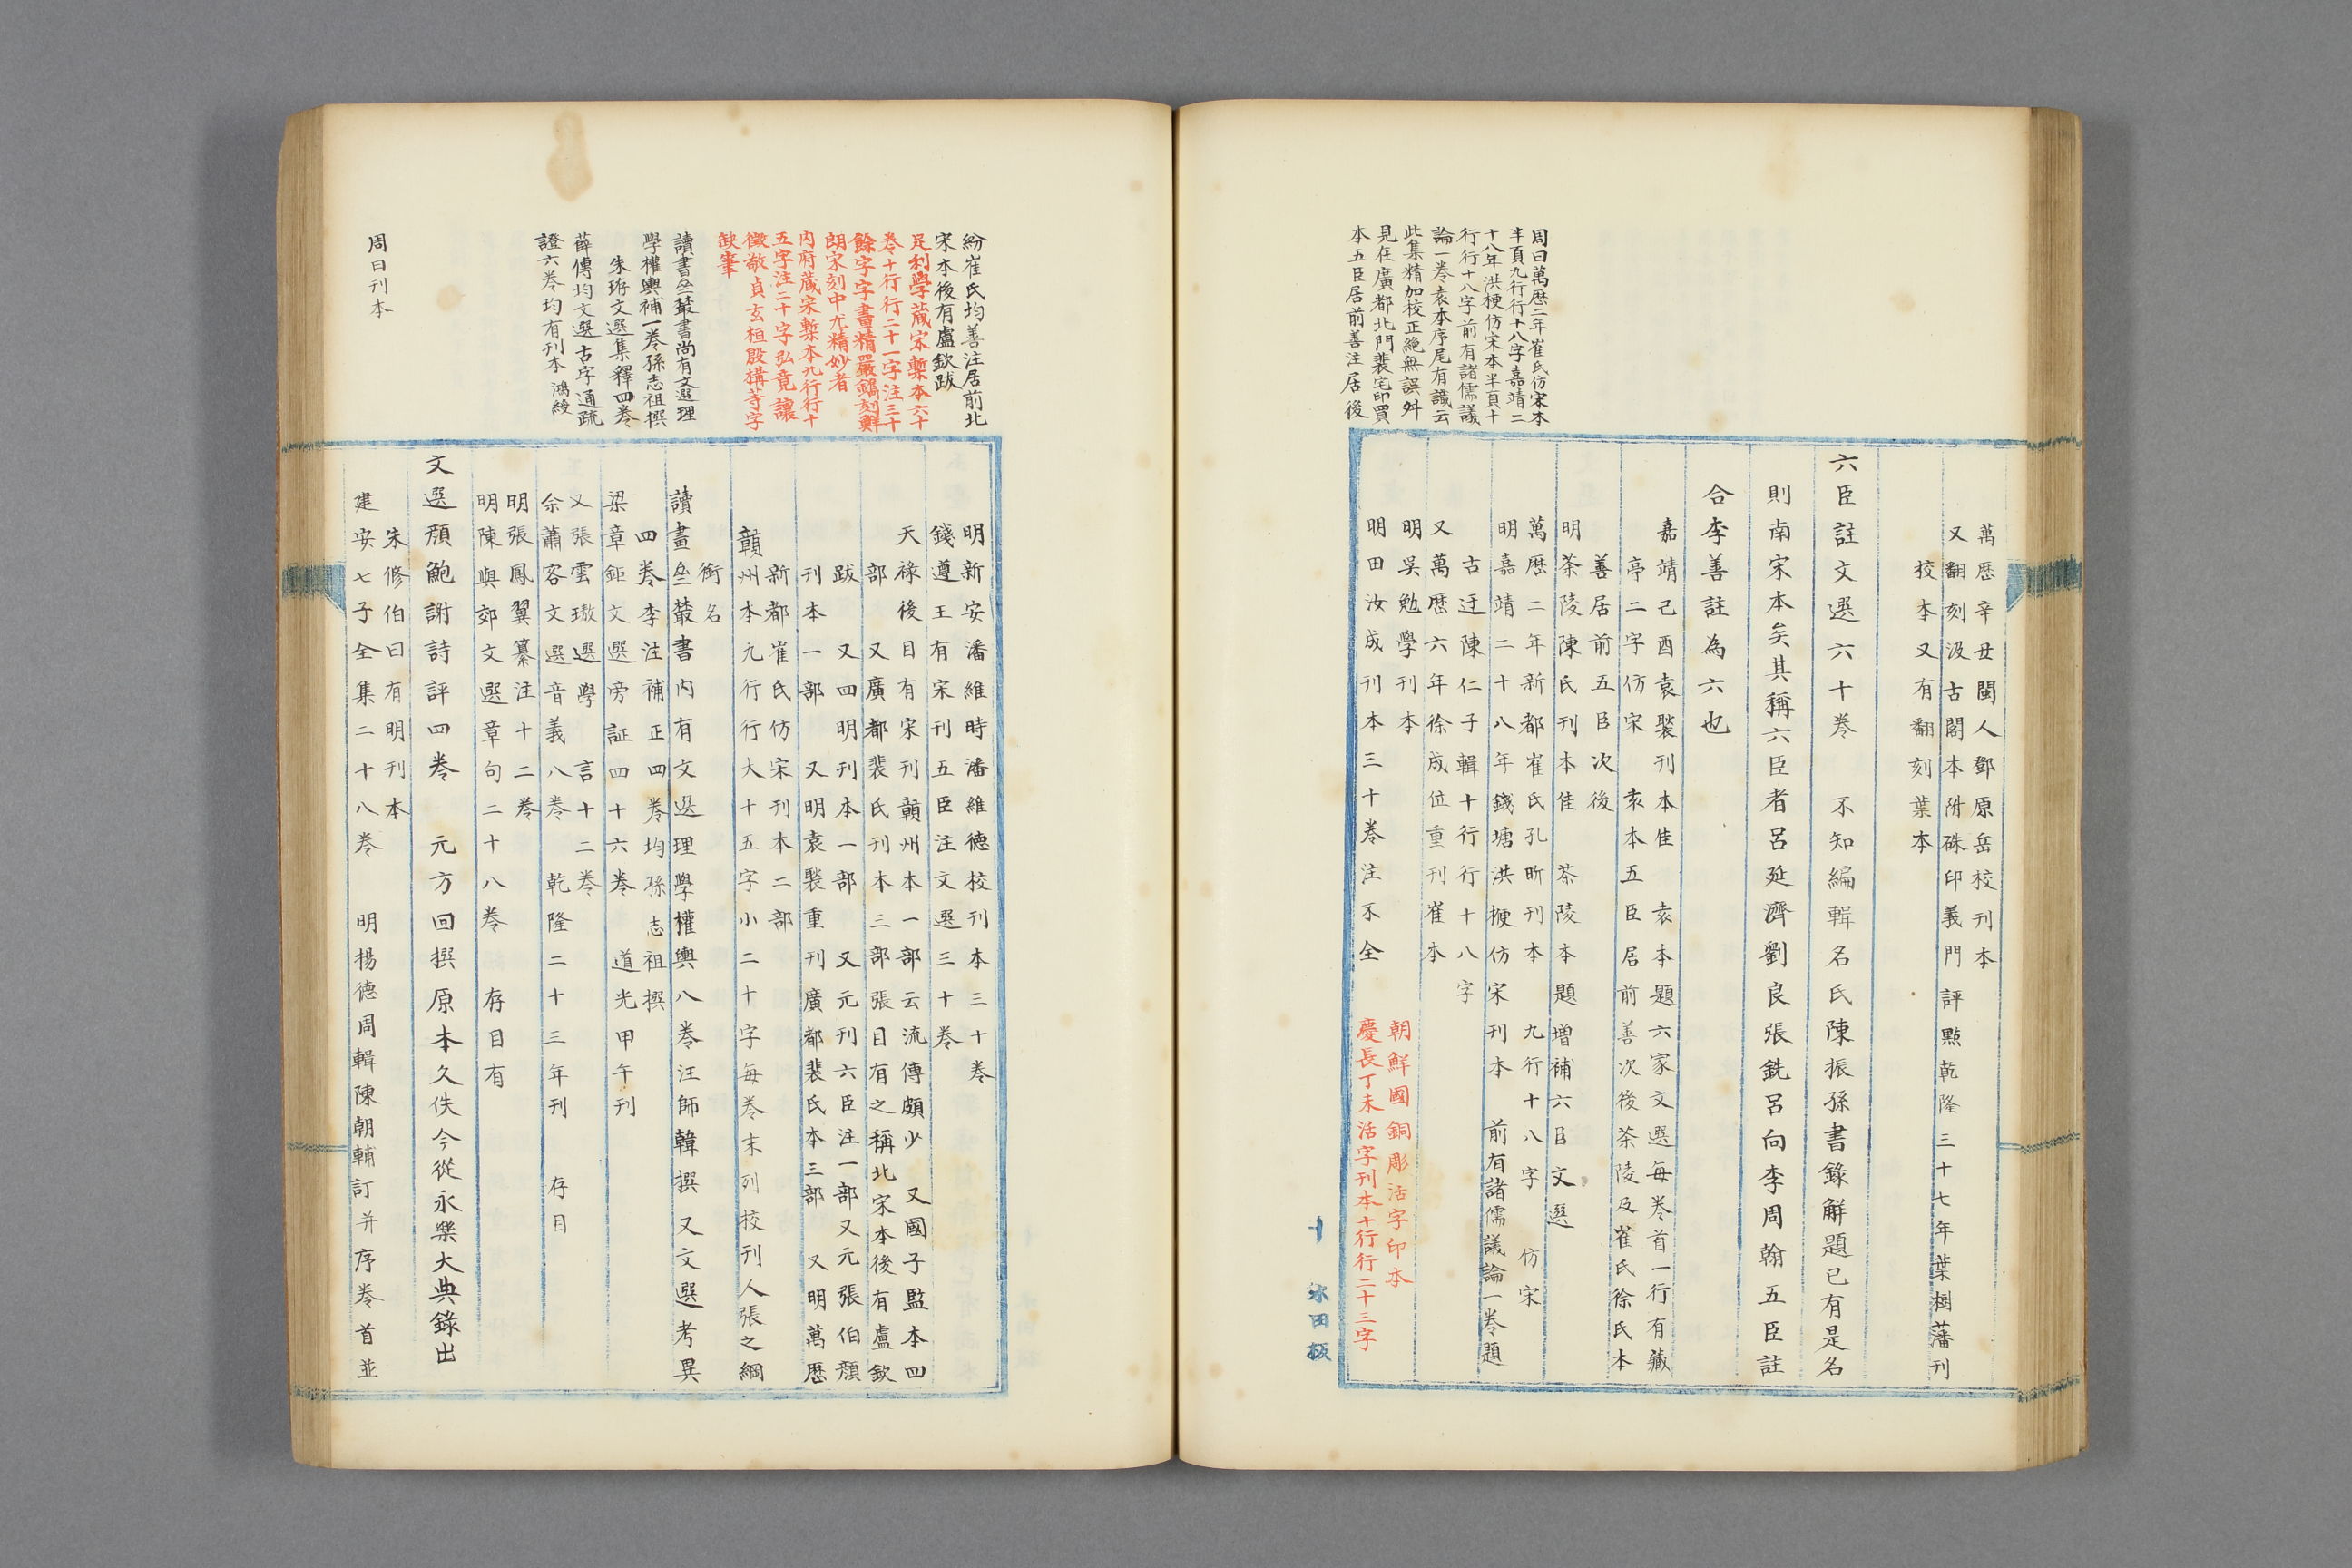 周曰萬厯二年崔氏仿宋本
半頁九行行十八字嘉靖二
十八年洪楩仿宋本半頁十
行行十八字前有諸儒議
論一卷袁本序尾有識云
此集精加校正絶無誤舛
見在廣都北門裴宅印買
本五臣居前善注居後
萬厯辛丑閩人鄧原岳校刊本
又翻刻汲古閣本附硃印義門評點乾隆三十七年葉樹藩刊
校本又有翻刻葉本
六臣註文選六十卷　不知編輯名氏陳振孫書錄解題已有是名
則南宋本矣其稱六臣者呂延濟劉良張銑呂向李周翰五臣註
合李善註為六也
嘉靖己酉袁褧刊本佳　袁本題六家文選每卷首一行有藏
亭二字仿宋　袁本五臣居前善次後茶陵及崔氏徐氏本
善居前五臣次後
明茶陵陳氏刊本佳　茶陵本題增補六臣文選
萬厯二年新都崔氏孔昕刊本　九行十八字　仿宋
明嘉靖二十八年錢塘洪楩仿宋刊本　前有諸儒議論一卷題
古迂陳仁子輯十行行十八字
又萬厯六年徐成位重刊崔本
明吳勉學刊本
朝鮮國銅彫活字印本
明田汝成刊本三十卷注不全
慶長丁未活字刊本十行行二十三字
十　氷田板
紛崔氏均善注居前北
宋本後有盧欽跋
足利學藏宋槧本六十
卷十行行二十一字注三十
餘字字畫精嚴鐫刻鮮
朗宋刻中尤精妙者
内府藏宋槧本九行行十
五字注二十字弘竟讓
徵敬貞玄桓殷構等字
缺筆
讀書叁叢書尚有文選理
學權輿補一卷孫志祖撰
朱珔文選集釋四卷
薛傳均文選古字通疏
證六卷均有刊本　鴻綬
周曰刊本
明新安潘維時潘維德校刊本三十卷
錢遵王有宋刊五臣注文選三十卷
天祿後目有宋刊贛州本一部云流傳頗少　又國子監本四
部　又廣都裴氏刊本三部張目有之稱北宋本後有盧欽
跋　又四明刊本一部　又元刊六臣注一部又元張伯顏
刊本一部　又明袁褧重刊廣都裴氏本三部　又明萬厯
新都崔氏仿宋刊本二部
贛州本九行行大十五字小二十字每卷末列校刊人張之綱
銜名
讀畫叁叢書内有文選理學權輿八卷汪師韓撰　又文選考異
四卷李注補正四卷均孫志祖撰
梁章鉅文選旁証四十六卷　道光甲午刊
又張雲璈選學　言十二卷
余蕭客文選音義八卷　乾隆二十三年刊　存目
明張鳳翼纂注十二卷
明陳與郊文選章句二十八卷　存目有
文選顏鮑謝詩評四卷　元方回撰　原本久佚今從永樂大典錄出
朱修伯曰有明刊本
建安七子全集二十八卷　明楊德周輯陳朝輔訂并序卷首並